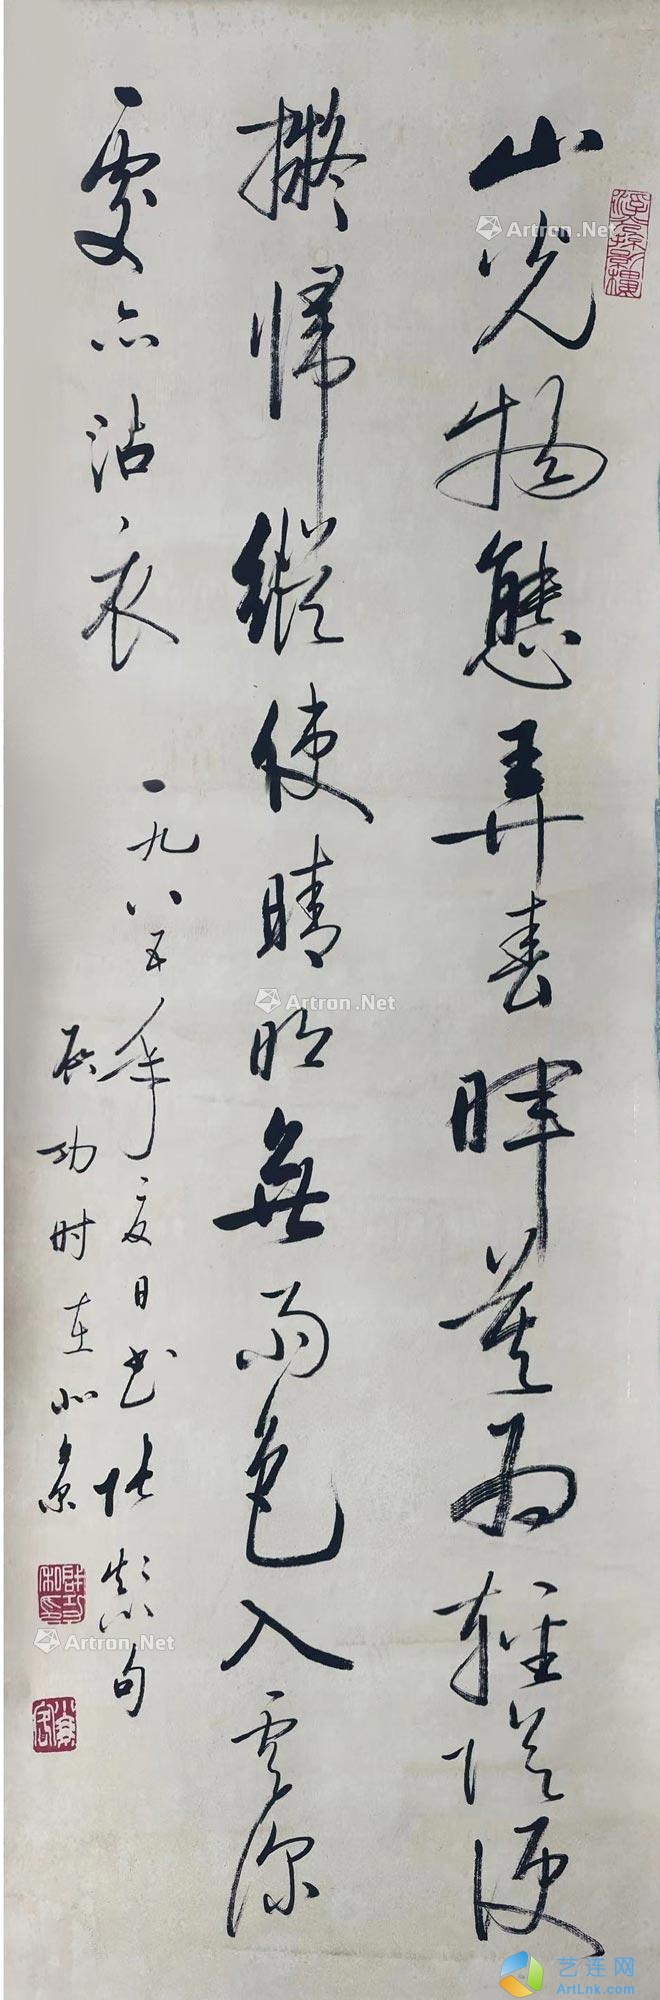 山光物態弄春暉莫為輕陰便
擬歸縱使晴明無雨色入雲深
處亦沾衣
一九八五年夏日书张顛句
啟功时在北京
浮光掠影樓
Artron.Net
Artron.Net
Artron.Net
艺连网
ArtLnk.com